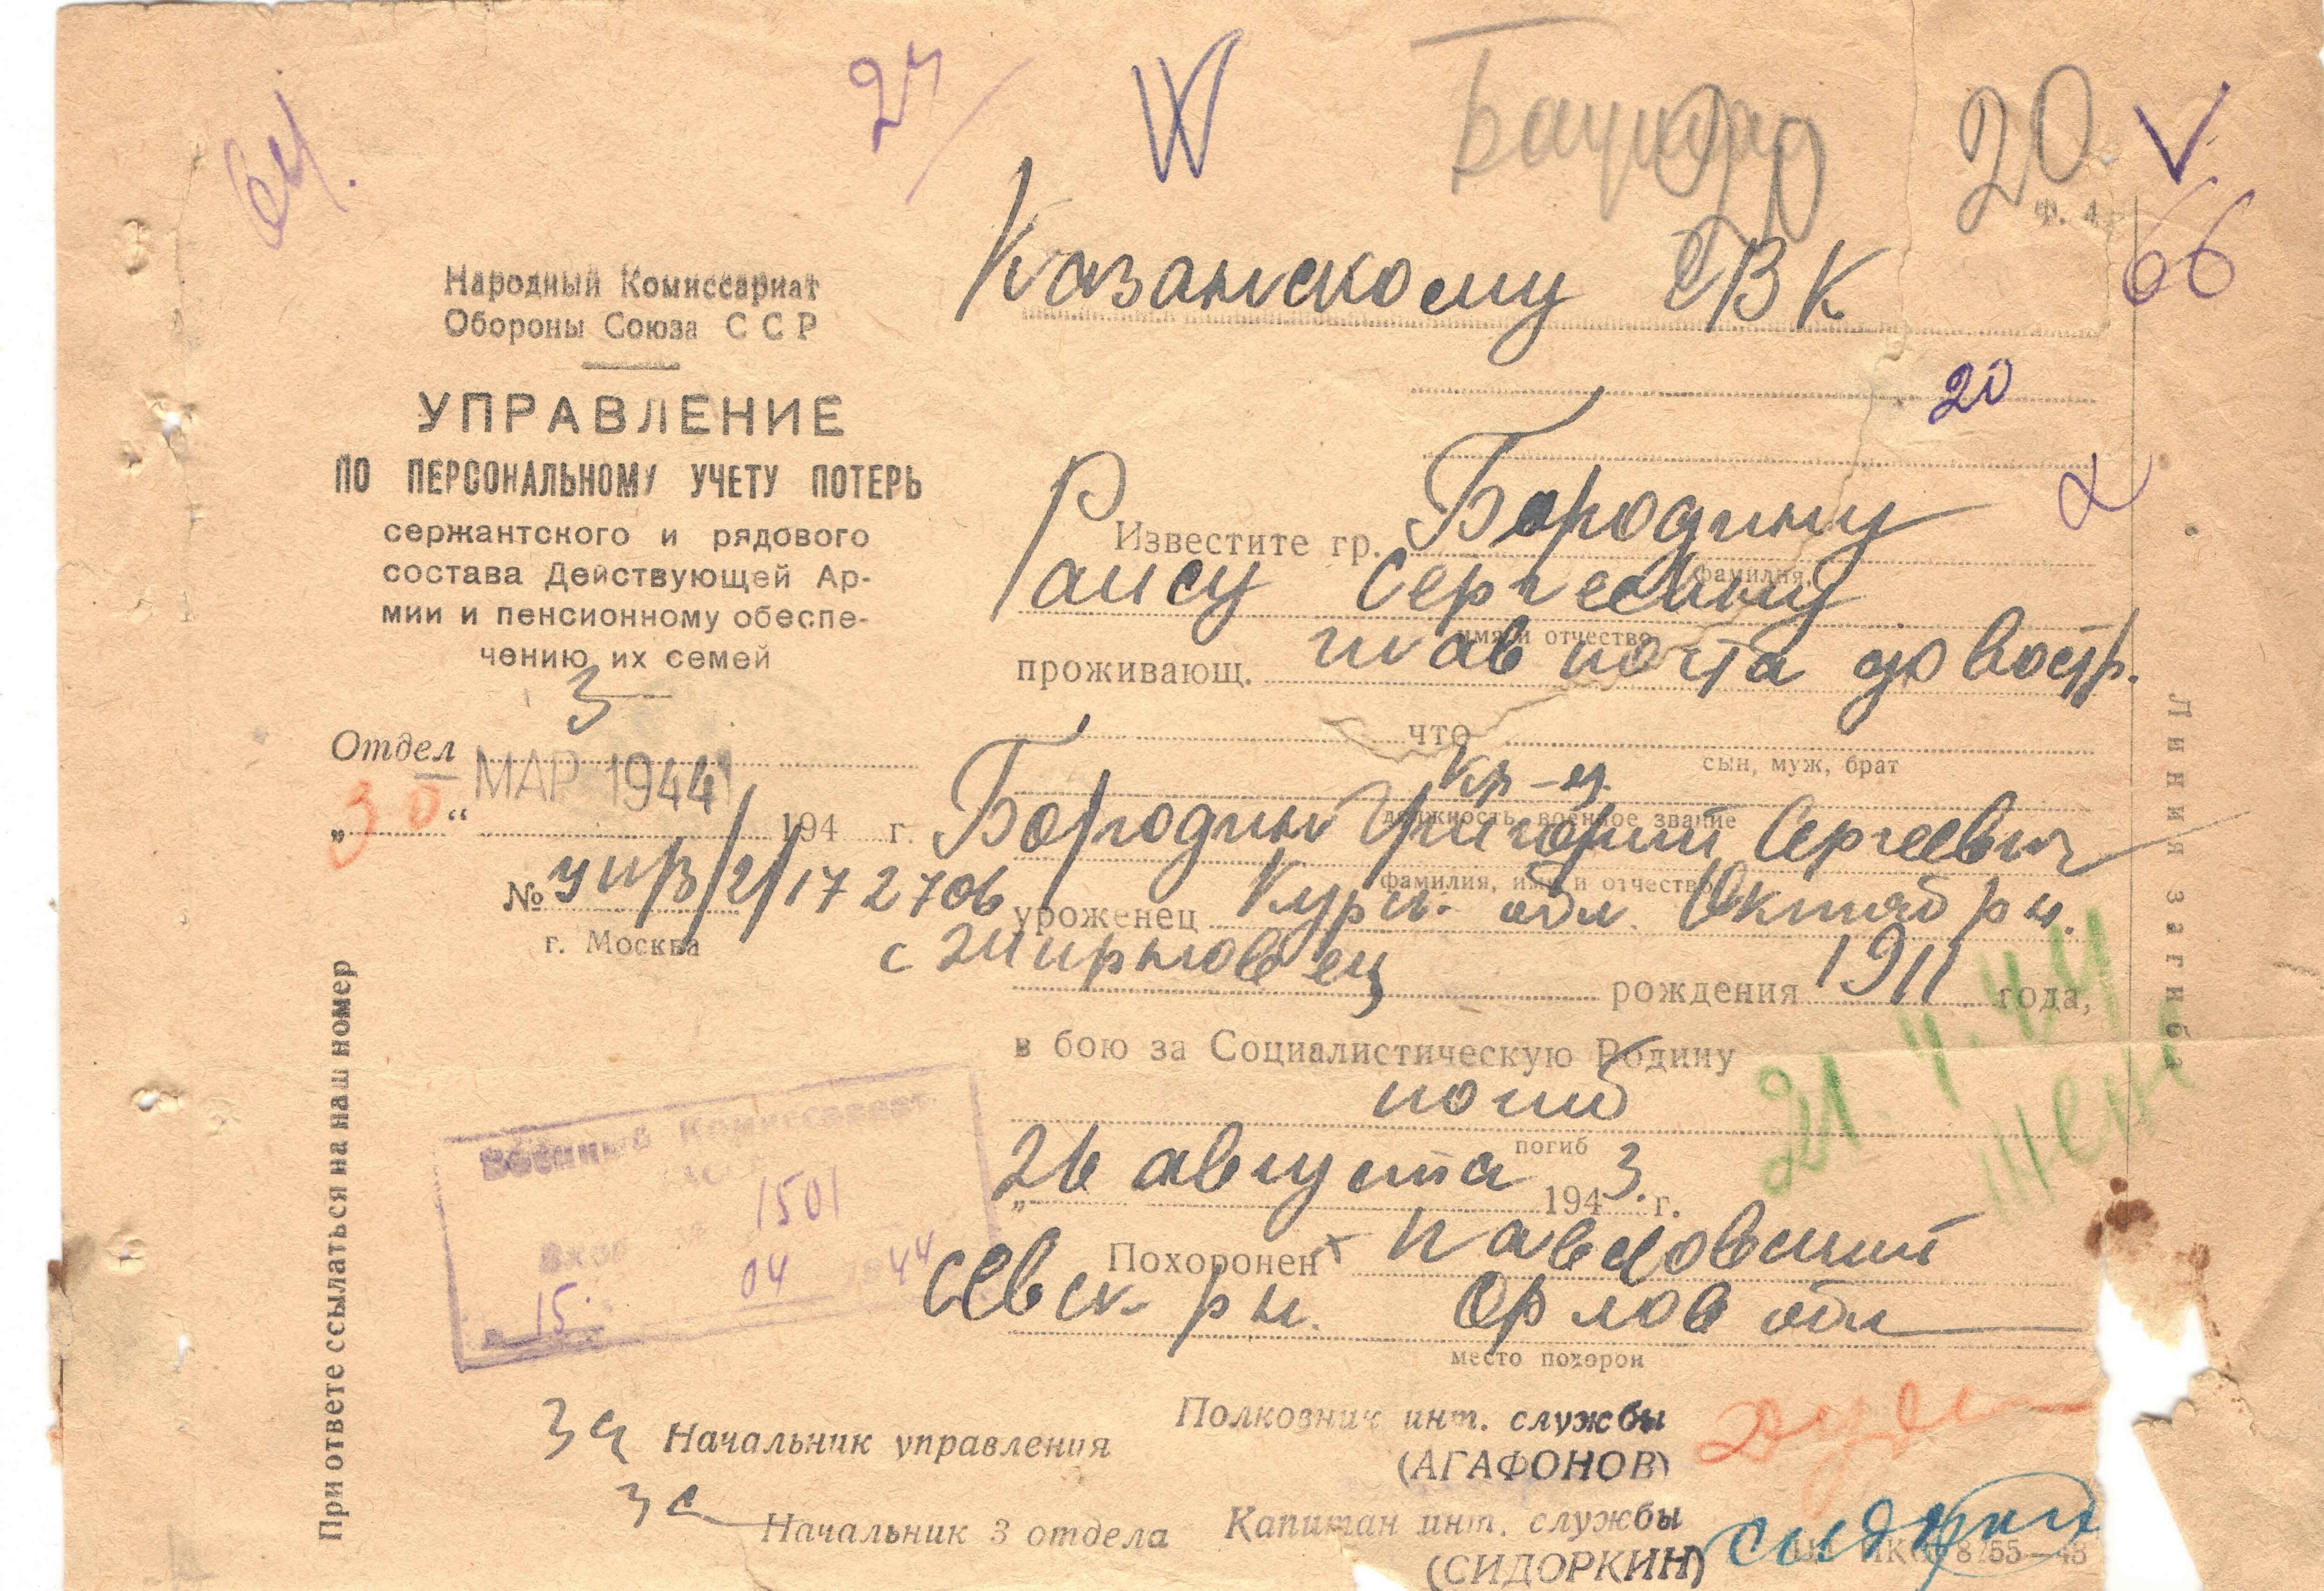 24
20
V
Ф. 4
66
Народный Комиссариат
Обороны Союза ССР
УПРАВЛЕНИЕ
ПО ПЕРСОНАЛЬНОМУ УЧЕТУ ПОТЕРЬ
сержантского и рядового
состава Действующей Ар-
мии и пенсионному обеспе-
чению их семей
3
Отдел
МАР 1944
„30“ 194 г.
№ упр/2/172706
г. Москва
При ответе ссылаться на наш номер
Казанскому ГВК
20
Известите гр. Бородину
фамилия,
Раису Сергеевну
имя и отчество
проживающ. глав почта до востр.
что
сын, муж, брат
кр-ц
должность, военное звание
Бородин Григорий Сергеевич
фамилия, имя и отчество
уроженец Курск. обл. Октяб рн.
с
рождения 1911 года,
в бою за Социалистическую Родину
погиб
погиб
„26 августа 1943 г.
Похоронен Павловский
Севск. рн. Орлов обл
место похорон
21.4.44
Линия загиба
Военный Комиссариат
1501
15. 04 1944
За Начальник управления
Полковник инт. службы
(АГАФОНОВ)
За Начальник 3 отдела
Капитан инт. службы
(СИДОРКИН)
Сидоркин